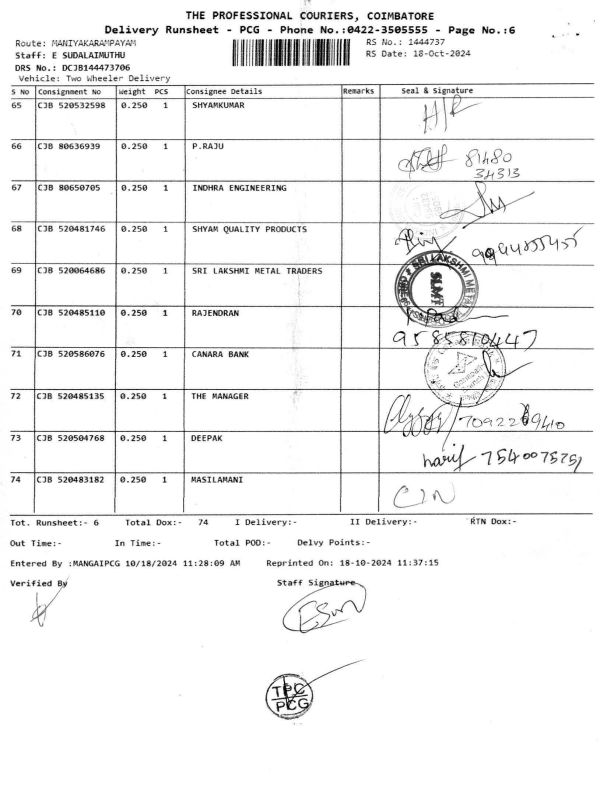 THE PROFESSIONAL COURIERS, COIMBATORE
Delivery Runsheet - PCG - Phone No.:0422-3505555 - Page No.:6
Route: MANIYAKARAMPAYAM RS No.: 1444737
Staff: E SUDALAIMUTHU RS Date: 18-Oct-2024
DRS No.: DCJB144473706
Vehicle: Two Wheeler Delivery
S No Consignment No Weight PCS Consignee Details Remarks Seal & Signature
65 CJB 520532598 0.250 1 SHYAMKUMAR
66 CJB 80636939 0.250 1 P.RAJU 81480
34313
67 CJB 80650705 0.250 1 INDHRA ENGINEERING
68 CJB 520481746 0.250 1 SHYAM QUALITY PRODUCTS
69 CJB 520064686 0.250 1 SRI LAKSHMI METAL TRADERS SRI LAKSHMI METAL SLMT
70 CJB 520485110 0.250 1 RAJENDRAN
9585810447
71 CJB 520586076 0.250 1 CANARA BANK
72 CJB 520485135 0.250 1 THE MANAGER
73 CJB 520504768 0.250 1 DEEPAK
harif 7540075751
74 CJB 520483182 0.250 1 MASILAMANI
Tot. Runsheet:- 6 Total Dox:- 74 I Delivery:- II Delivery:- RTN Dox:-
Out Time:- In Time:- Total POD:- Delvy Points:-
Entered By :MANGAIPCG 10/18/2024 11:28:09 AM Reprinted On: 18-10-2024 11:37:15
Verified By Staff Signature
TPC
PCG